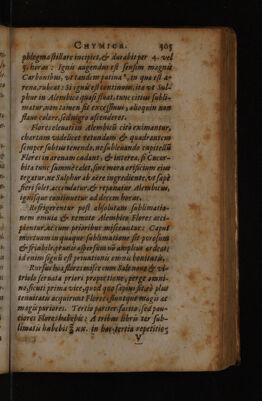 CHYMICA. 305
phlegma stillare incipiet, & durabit per 4. vel
5. horas: Ignis augendus est sensim magnis
Carbonibus, vt tandem patina, in qua est a-
rena, rubeat: Si ignis est continuus, ita vt Sul-
phur in Alembico quasi fluat, tunc citius subli-
matur, non tamen sit excessiuus, alioquin non
flauo colore, sed nigro ascenderet.
Flores eleuati in Alembicū citò eximantur,
chartam videlicet tenuem &
semper subtus tenendo, ne subleuando capitellū
Flores in arenam cadant, & interea, si Cucur-
bita tunc summè calet, sine mora orificium eius
tegatur, ne Sulphur ab aëre ingrediente, vt sæpè
fieri solet, accendatur, & reponatur Alembicus,
ignisque continuetur ad decem horas.
Refrigerentur post absolutam sublimatio-
nem omnia & remoto Alembico Flores acci-
piuntur, ac cum prioribus miscentur: Caput
mortuum in quaque sublimatione sit porosum
& friabile, prunis aspersum nō amplius ardeat;
id enim signū est priuationis omnis bonitatis.
Rursus hos flores misce cum Sale nouo & vi-
triolo seruata priori proportione, perge omni-
no, sicuti prima vice, quod quo sæpius fit, eò plus
tenuitatis acquirunt Flores, fiuntque magis ac
magis puriores. Tertiò pariter facito, sed pau-
ciores Flores habebis: A tribus libris ter sub-
limatis habebis XX. in hac tertia repetitio-
V